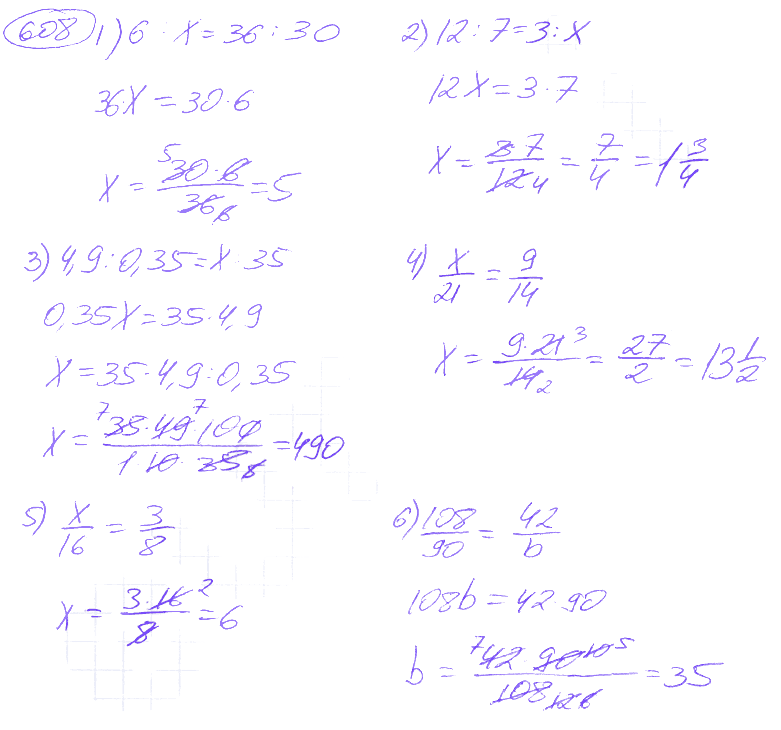 608 1) 6 : x = 36 : 30
36x = 30 · 6
x = 5 30 · 6 / 36 6 = 5
2) 12 : 7 = 3 : x
12x = 3 · 7
x = 3 · 7 / 12 4 = 7/4 = 1 3/4
3) 4,9 : 0,35 = x · 35
0,35x = 35 · 4,9
x = 35 · 4,9 : 0,35
x = 7 35 · 49 7 · 100 / 1 10 · 35 = 490
4) x/21 = 9/14
x = 9 · 21 3 / 14 2 = 27/2 = 13 1/2
5) x/16 = 3/8
x = 3 · 16 2 / 8 = 6
6) 108/90 = 42/b
108b = 42 · 90
b = 7 42 · 90 10 5 / 108 12 6 = 35